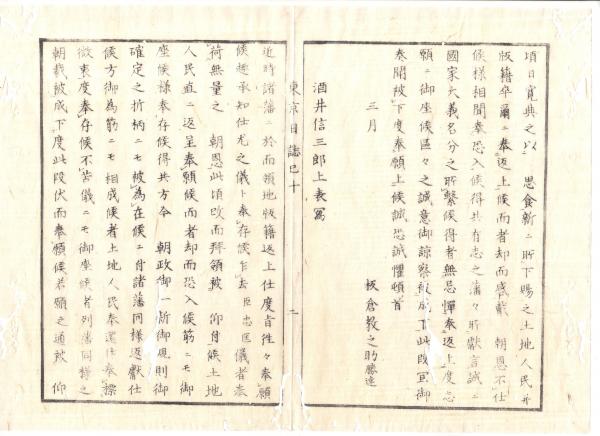 頃日寛典之以　思食新ニ所下賜之土地人民并
版籍卒爾ニ奉返上候而者却而感戴　朝恩不仕
候様相聞奉恐入候得共有志之藩々所獻言誠ニ
國家大義名分之所繋候得者無忌憚奉返上度志
願ニ御座候區々之誠意御諒察被成下此段宜御
奏聞被下度奉願上候誠恐誠懼頓首
三月
板倉教之助勝達
酒井信三郎上表寫
東京日誌巳十
二
近時諸藩ニ於而領地版籍返上仕度旨往々奉願
候趣承知仕尤之儀ト奉存候乍去臣忠匡儀者奉
荷無量之　朝恩此頃改而拜領被　仰付候土地
人民直ニ返呈奉願候而者却而恐入候筋ニモ御
座候様奉存候得共方今　朝政御一新御規則御
確定之折柄ニモ被為在候ニ付諸藩同様返獻仕
候方御為筋ニモ相成候者土地人民奉還仕奉標
微衷度奉存候不苦儀ニモ御座候者列藩同様之
朝裁被成下度此段伏而奉願候若願之通被　仰